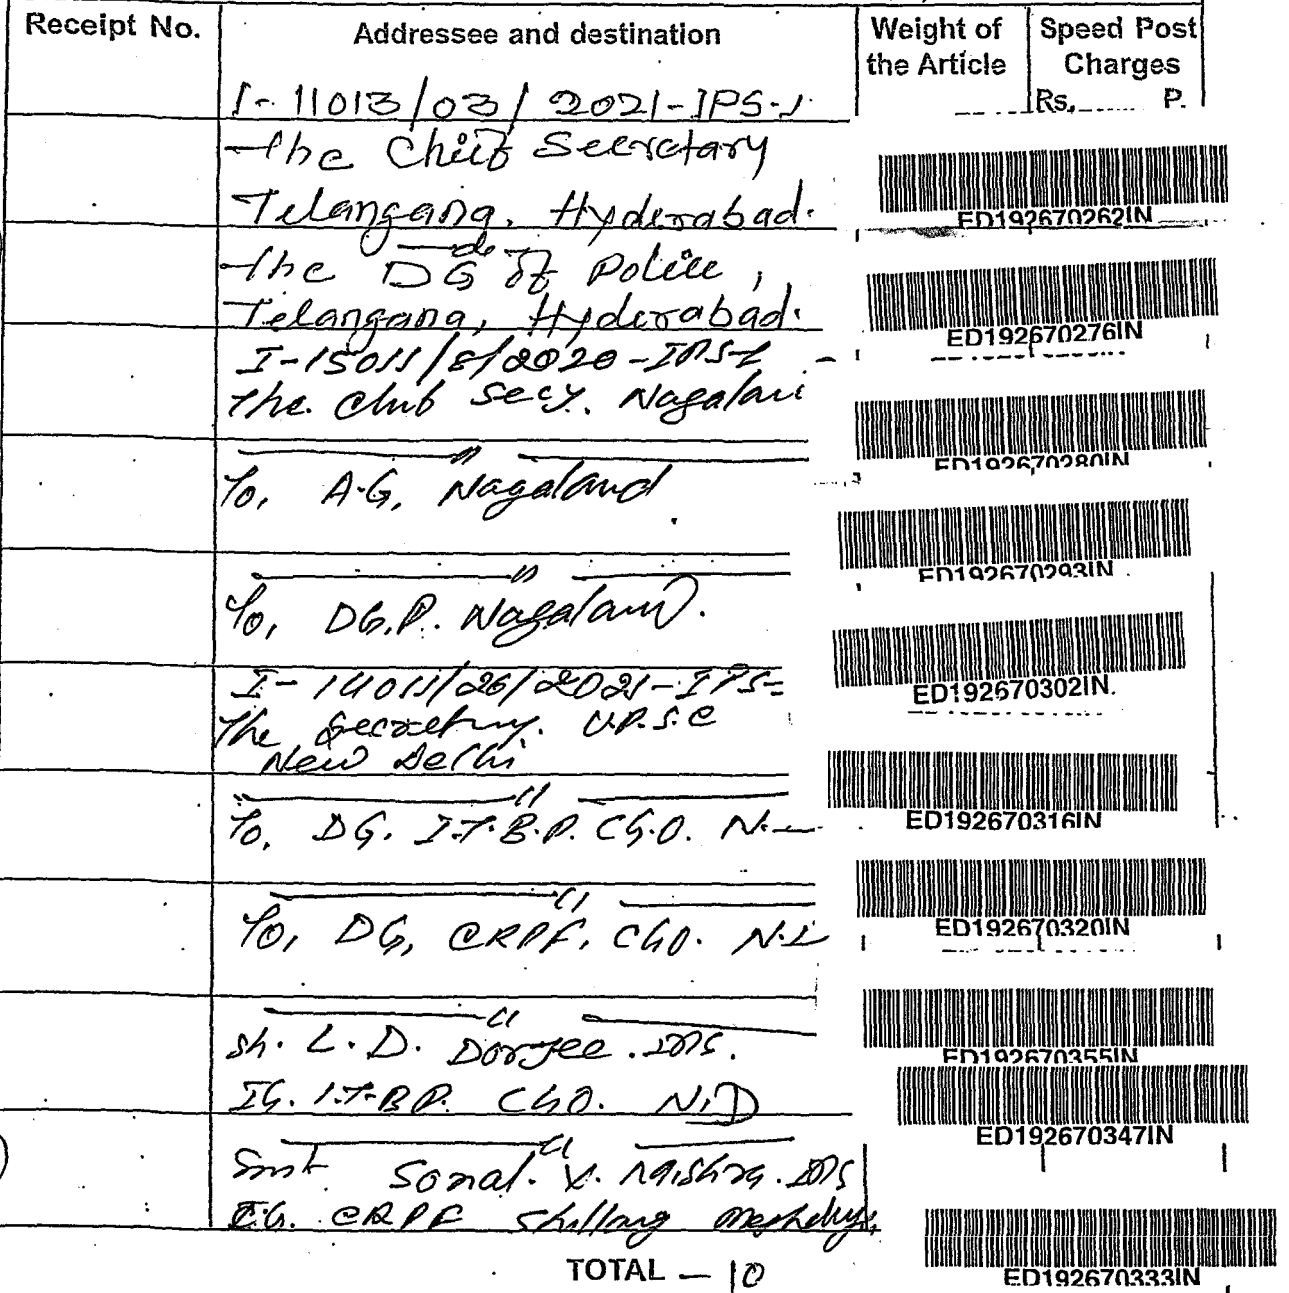 Receipt No. Addressee and destination Weight of the Article Speed Post Charges
Rs. P.
I-11013/03/2021-IPS-I
The Chief Secretary
Telangana, Hyderabad.
ED192670262IN
do
The DG of Police,
Telangana, Hyderabad.
ED192670276IN
I-15011/8/2020-IPS-I
The Chief Secy. Nagaland
ED192670280IN
—"—
To, A.G, Nagaland
ED192670293IN
—"—
To, DG.P. Nagaland.
ED192670302IN
I-14011/26/2021-IPS-
The Secretary. U.P.S.C
New Delhi
ED192670316IN
—"—
To, DG. I.T.B.P. CGO. N.
ED192670320IN
—"—
To, DG, CRPF, CGO. N.D
ED192670355IN
—"—
Sh. L.D. Dorjee. IPS.
IG. I.T.B.P. CGO. N.D
ED192670347IN
—"—
Smt Sonal. V. Mishra. IPS
I.G. CRPF Shillong Meghalaya
ED192670333IN
TOTAL — 10